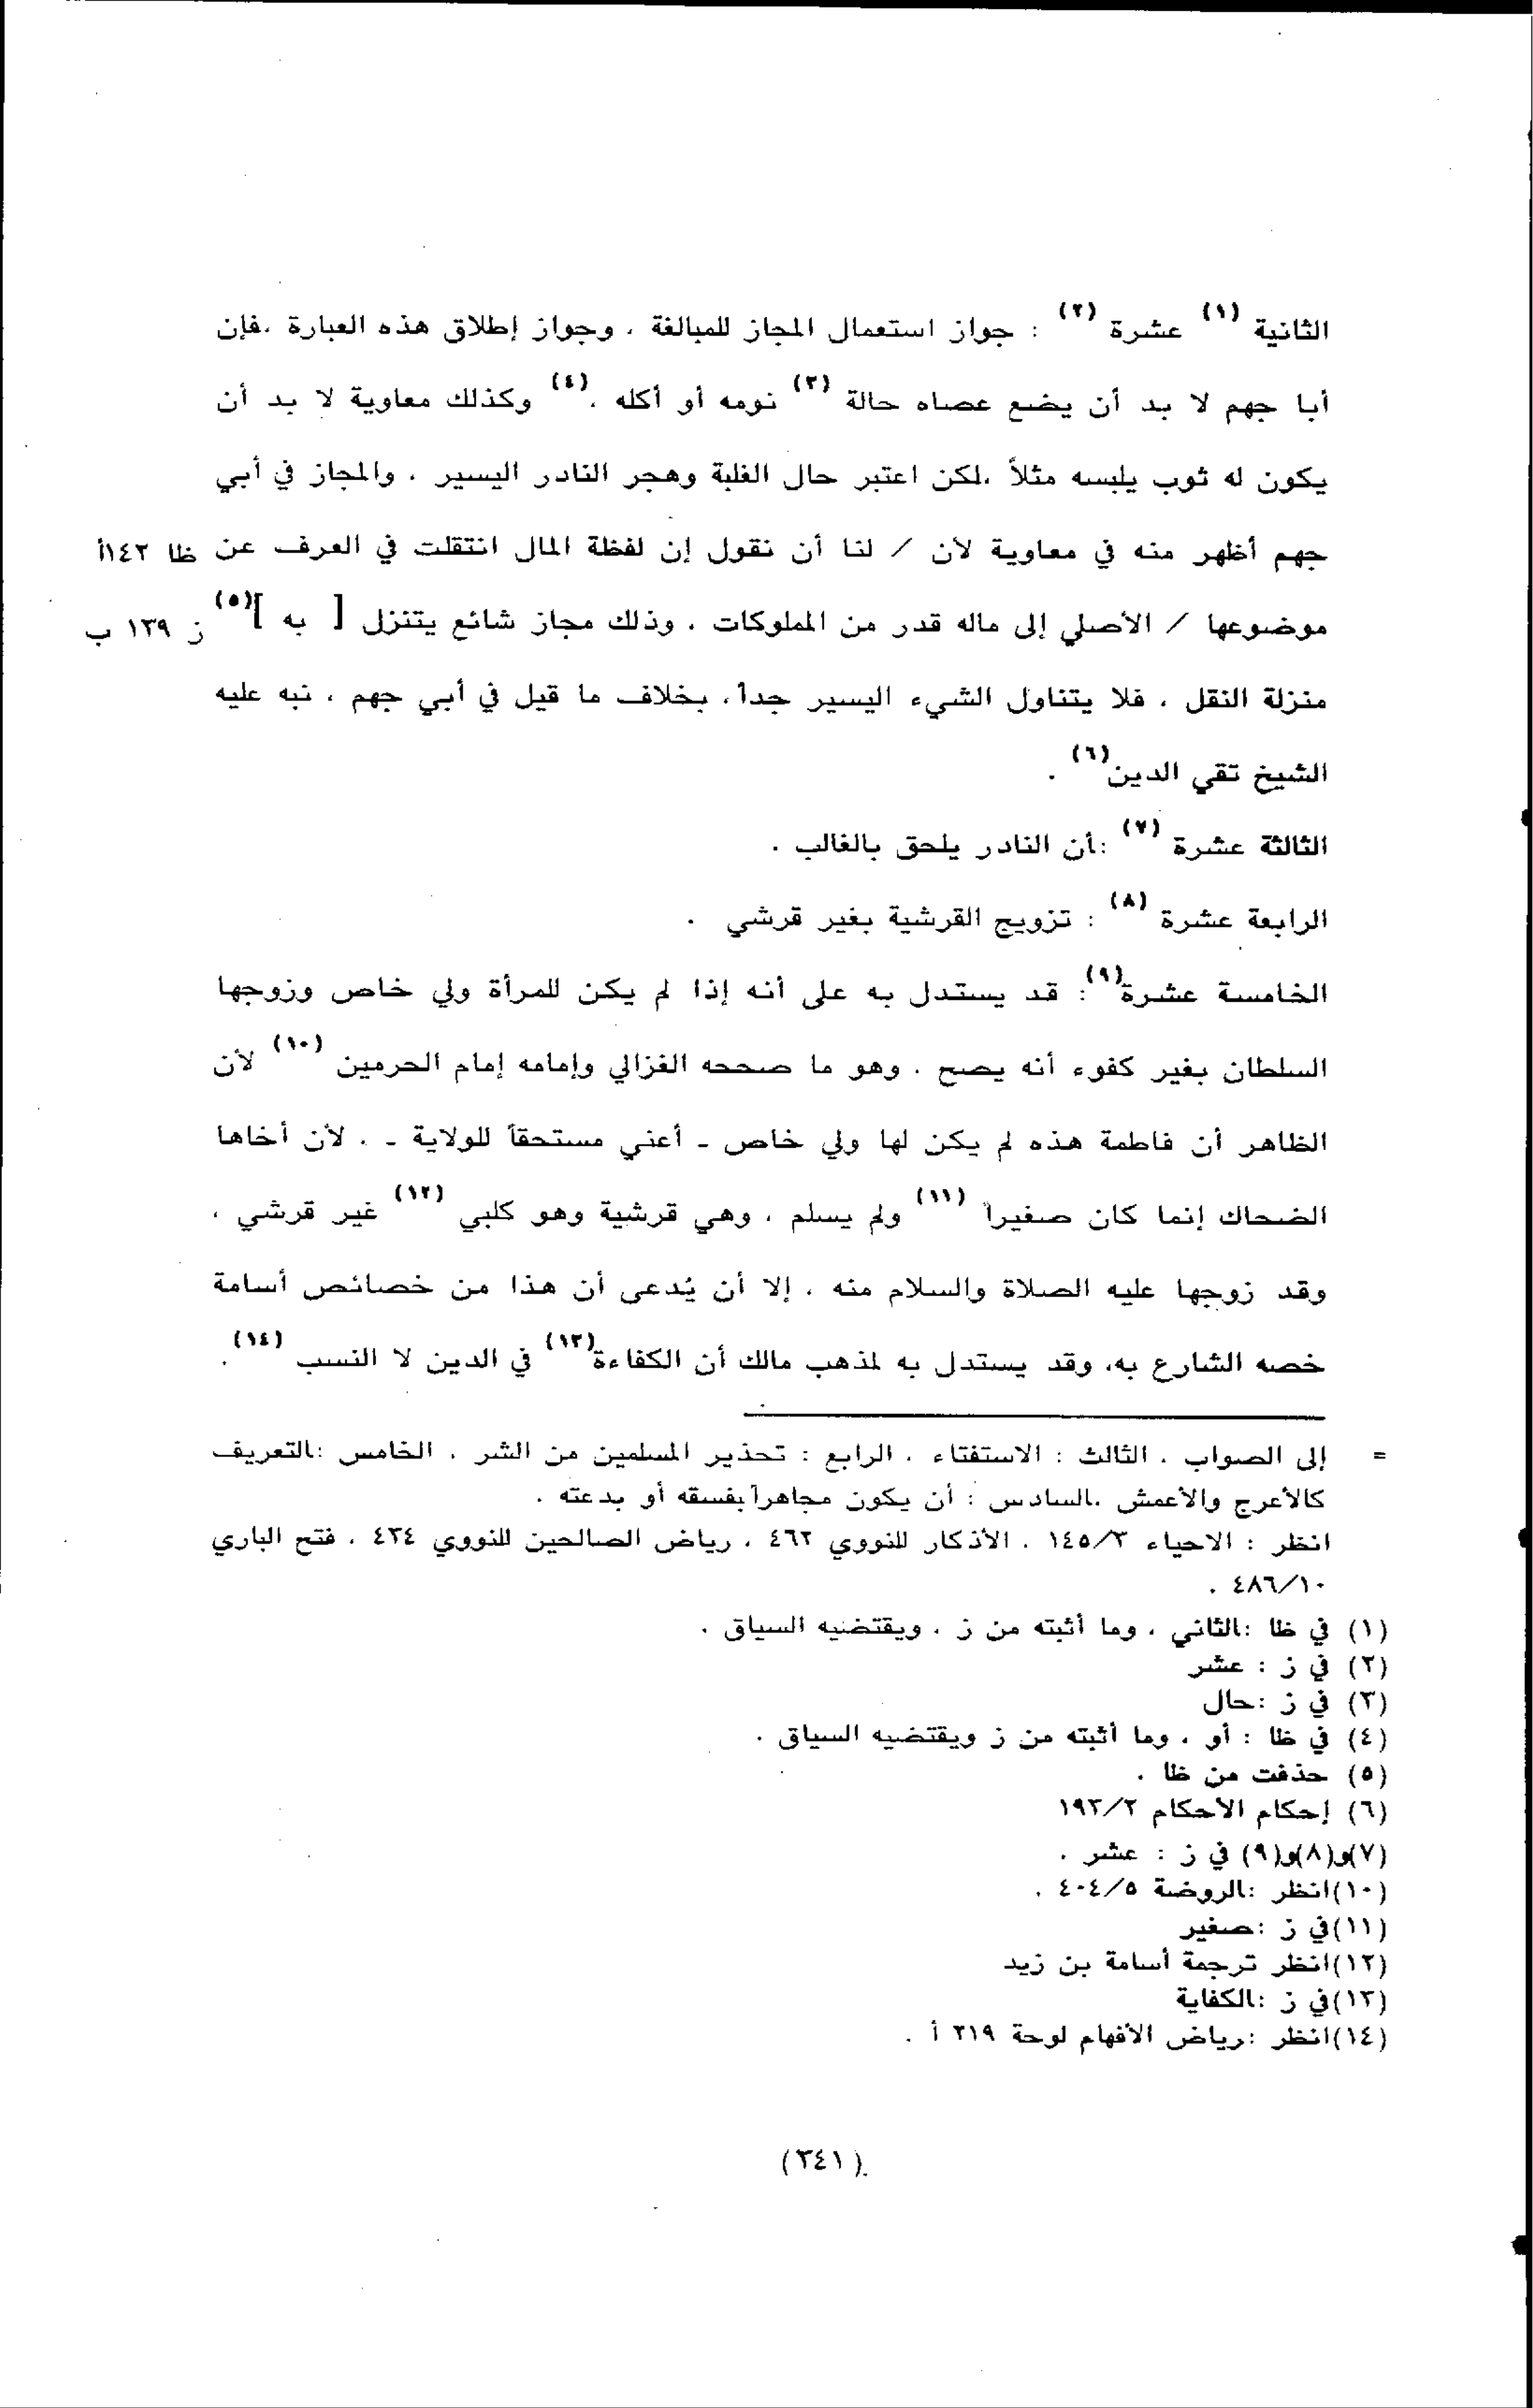 الثانية (١) عشرة (٢) : جواز استعمال المجاز للمبالغة ، وجواز إطلاق هذه العبارة ،فإن
أبا جهم لا بد أن يضع عصاه حالة (٣) نومه أو أكله ،(٤) وكذلك معاوية لا بد أن
يكون له ثوب يلبسه مثلاً ،لكن اعتبر حال الغلبة وهجر النادر اليسير ، والمجاز في أبي
جهم أظهر منه في معاوية لأن / لنا أن نقول إن لفظة المال انتقلت في العرف عن ظا ١٤٢أ
موضوعها / الأصلي إلى ماله قدر من المملوكات ، وذلك مجاز شائع يتنزل [ به ](٥) ز ١٣٩ ب
منزلة النقل ، فلا يتناول الشيء اليسير جداً، بخلاف ما قيل في أبي جهم ، نبه عليه
الشيخ تقي الدين(٦) .
الثالثة عشرة (٧) :أن النادر يلحق بالغالب .
الرابعة عشرة (٨) : تزويج القرشية بغير قرشي .
الخامسة عشرة(٩): قد يستدل به على أنه إذا لم يكن للمرأة ولي خاص وزوجها
السلطان بغير كفوء أنه يصح ، وهو ما صححه الغزالي وإمامه إمام الحرمين (١٠) لأن
الظاهر أن فاطمة هذه لم يكن لها ولي خاص - أعني مستحقاً للولاية - ، لأن أخاها
الضحاك إنما كان صغيراً (١١) ولم يسلم ، وهي قرشية وهو كلبي (١٢) غير قرشي ،
وقد زوجها عليه الصلاة والسلام منه ، إلا أن يُدعى أن هذا من خصائص أسامة
خصه الشارع به، وقد يستدل به لمذهب مالك أن الكفاءة(١٣) في الدين لا النسب (١٤).
= إلى الصواب ، الثالث : الاستفتاء ، الرابع : تحذير المسلمين من الشر ، الخامس :التعريف
كالأعرج والأعمش ،السادس : أن يكون مجاهراً بفسقه أو بدعته .
انظر : الاحياء ١٤٥/٣ ، الأذكار للنووي ٤٦٢ ، رياض الصالحين للنووي ٤٢٤ ، فتح الباري
٤٨٦/١٠ .
(١) في ظا :الثاني ، وما أثبته من ز ، ويقتضيه السياق .
(٢) في ز : عشر
(٣) في ز :حال
(٤) في ظا : أو ، وما أثبته من ز ويقتضيه السياق .
(٥) حذفت من ظا .
(٦) إحكام الأحكام ١٩٣/٢
(٧)و(٨)و(٩) في ز : عشر .
(١٠)انظر :الروضة ٤٠٤/٥ .
(١١)في ز :صغير
(١٢)انظر ترجمة أسامة بن زيد
(١٣)في ز :الكفاية
(١٤)انظر :رياض الأفهام لوحة ٢١٩ أ .
(٣٤١)